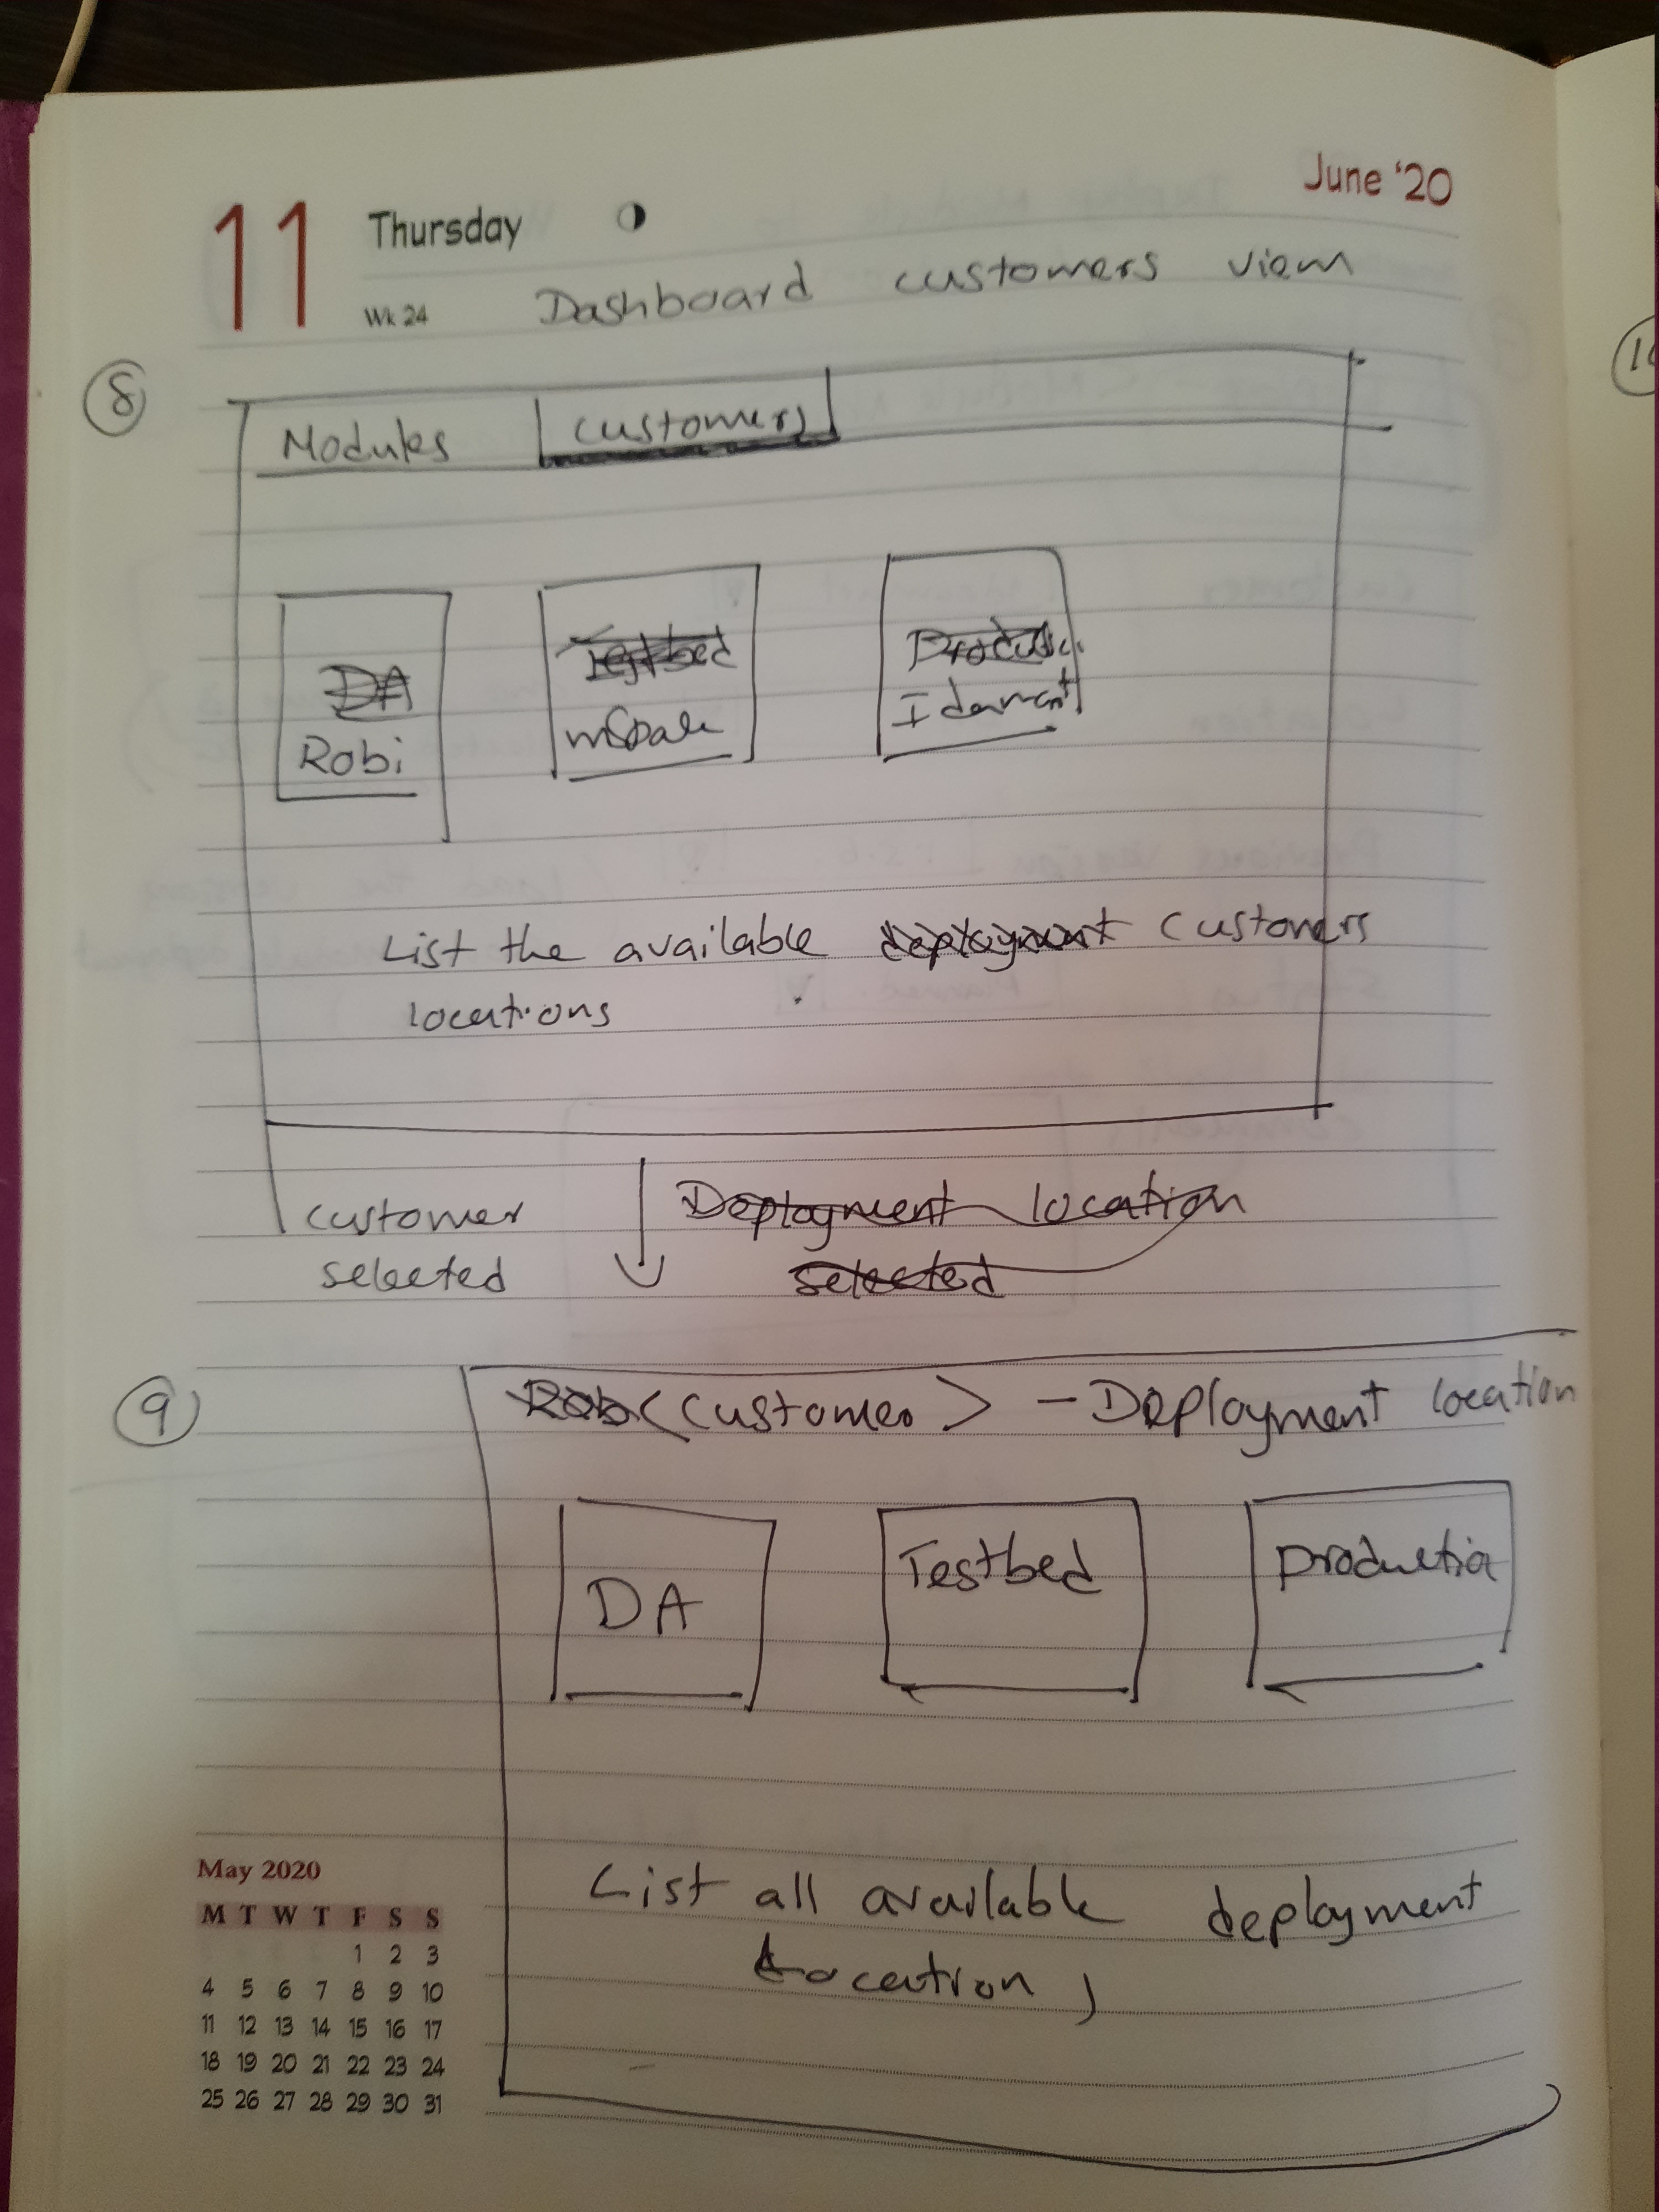 June '20
11 Thursday
Wk 24 Dashboard customers view
8
Modules customers
DA Testbed
Robi Idamart
List the available deployment customers
locations
customer Deployment location
selected selected
9
Rob <customer> - Deployment location
DA Testbed production
List all available deployment
Location)
May 2020
M T W T F S S
1 2 3
4 5 6 7 8 9 10
11 12 13 14 15 16 17
18 19 20 21 22 23 24
25 26 27 28 29 30 31